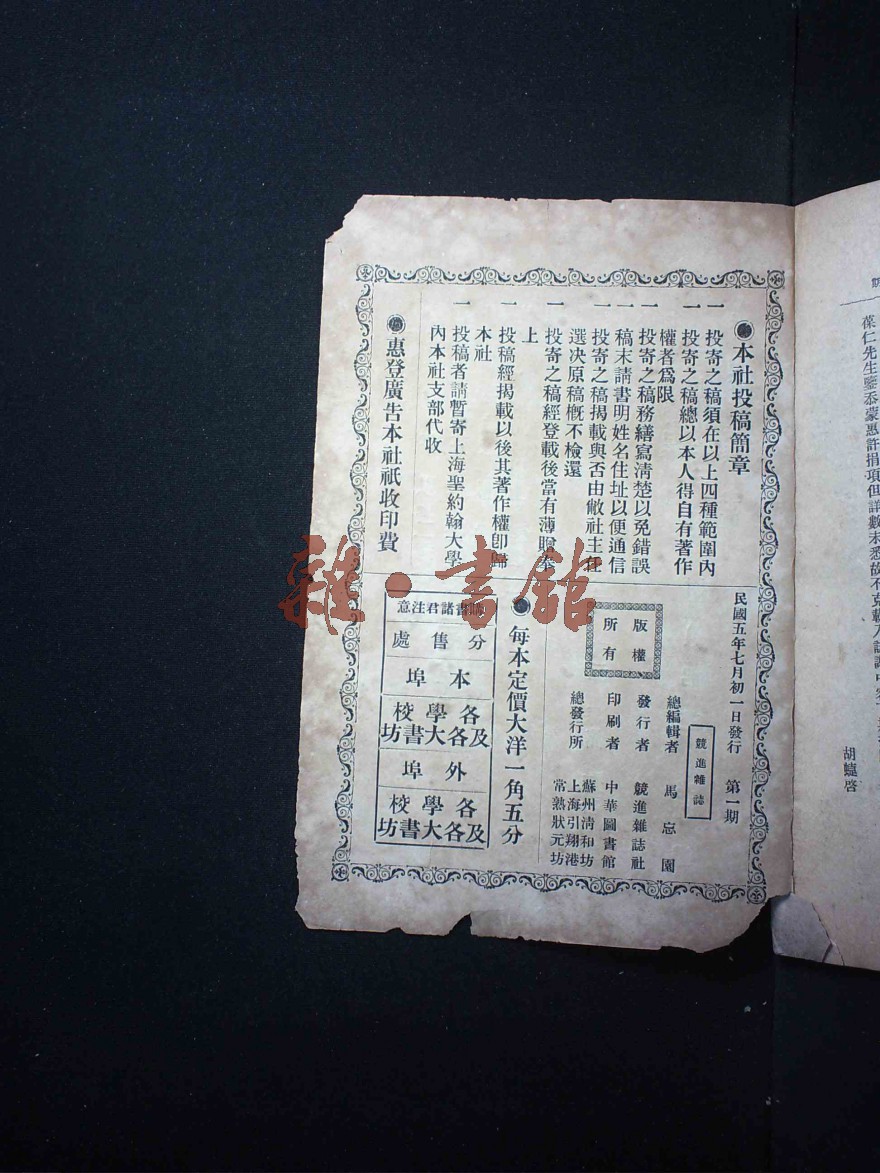 ●本社投稿簡章
一 投寄之稿須在以上四種範圍內
一 投寄之稿總以本人得自有著作
權者爲限
一 投寄之稿務繕寫清楚以免錯誤
一 稿末請書明姓名住址以便通信
一 投寄之稿揭載與否由敝社主任
選決原稿槪不檢還
一 投寄之稿經登載後當有薄贈奉
上
一 投稿經揭載以後其著作權卽歸
本社
一 投稿者請暫寄上海聖約翰大學
內本社支部代收
●惠登廣告本社祇收印費
民國五年七月初一日發行 第一期
競進雜誌
總編輯者 馬忘園
發行者 競進雜誌社
印刷者 中華圖書館
總發行所
蘇州清和坊
上海引翔港
常熟狀元坊
版權
所有
●每本定價大洋一角五分
書諸君注意
分售處
本埠
各學校
及各大書坊
外埠
各學校
及各大書坊
葆仁先生鑒忝蒙惠許捐項但詳數未悉故不克載入
胡蟻啓
雜·書館